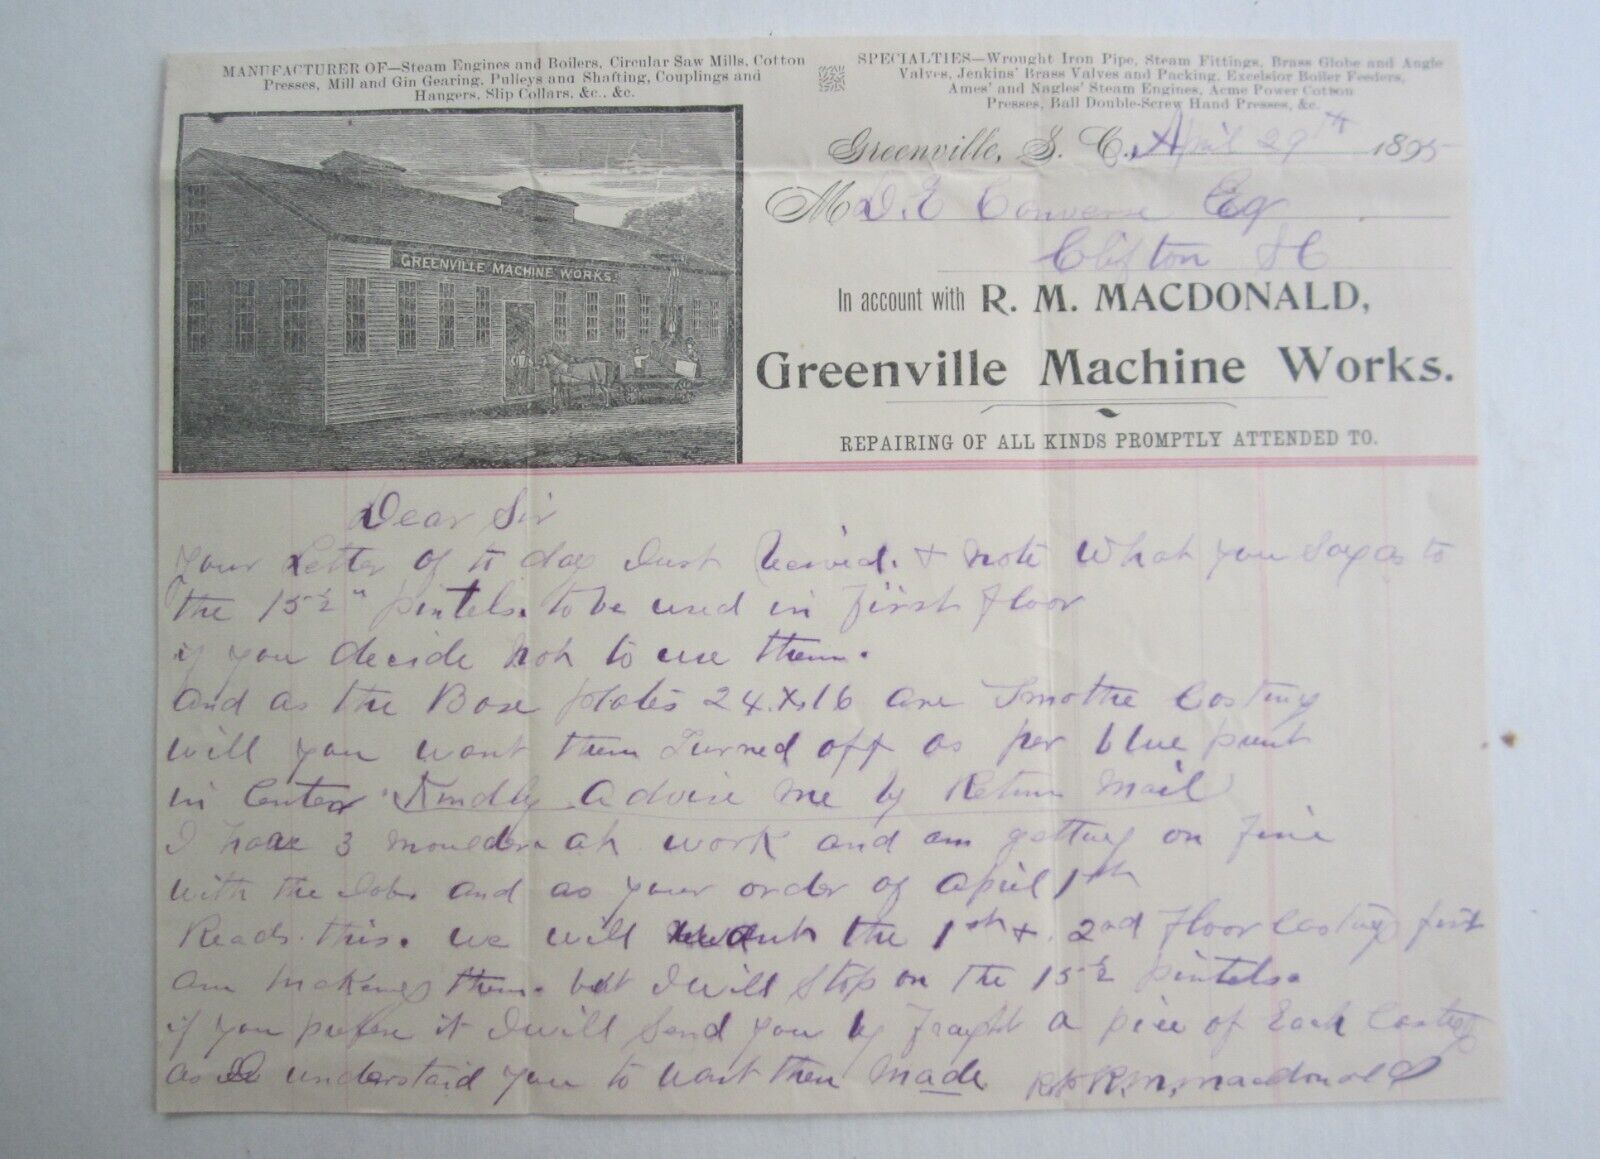 MANUFACTURER OF—Steam Engines and Boilers, Circular Saw Mills, Cotton
Presses, Mill and Gin Gearing, Pulleys and Shafting, Couplings and
Hangers, Slip Collars, &c., &c.
SPECIALTIES—Wrought Iron Pipe, Steam Fittings, Brass Globe and Angle
Valves, Jenkins' Brass Valves and Packing, Excelsior Boiler Feeders,
Ames' and Nagles' Steam Engines, Acme Power Cotton
Presses, Ball Double-Screw Hand Presses, &c.
GREENVILLE MACHINE WORKS.
Greenville, S. C., April 29th 1895
M D. E Converse Eq
Clifton SC
In account with R. M. MACDONALD,
Greenville Machine Works.
REPAIRING OF ALL KINDS PROMPTLY ATTENDED TO.
Dear Sir
Your Letter of to day Just Received. & note What you Say as to
the 15½" pintels. to be used in First Floor
if you decide not to use them.
and as the Base plates 24 x 16 are Smothe Casting
will you want them Turned off as per blue print
in Center Kindly advise me by Return Mail
I have 3 moulders at work and am getting on Fine
with the Job and as your order of April 1th
Reads. this. we will want the 1st & 2nd Floor Casting first
am making them. but I will Stop on the 15½ pintels.
if you prefere it I will Send you by Fraght a piece of Each Casting
as I understaid you to want then Made R. M. Macdonald